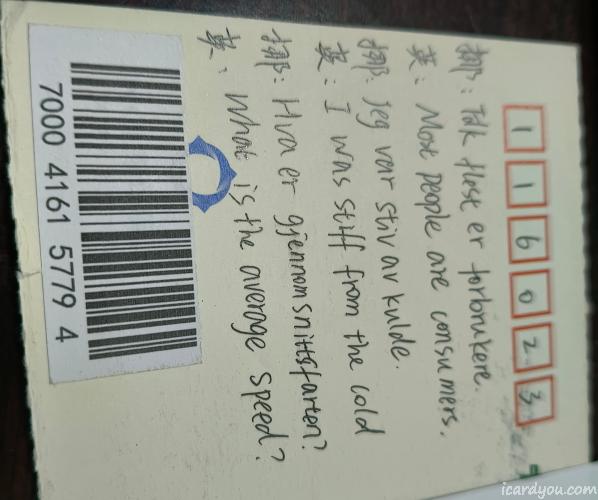 116023
挪: Tdk flest er forbrukere.
英: Most people are consumers.
挪: Jeg var stiv av kulde.
英: I was stiff from the cold
挪: Hva er gjennomsnittsfarten?
英: What is the average speed?
7000 4161 5779 4
icardyou.com